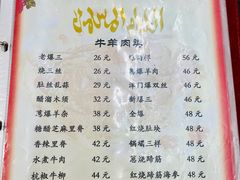 牛羊肉类
老爆三 26元
烧三丝 26元
肚丝乱蒜 29元
醋溜木须 32元
葱爆羊杂 38元
糖醋芝麻里脊 38元
香辣里脊 39元
水煮牛肉 42元
杭椒牛柳 44元
46元
葱爆羊肉 46元
洋门爆双丝 56元
新爆三 46元
全爆 48元
红烧肚块 48元
锅塌三样 48元
葱烧蹄筋 48元
红烧蹄筋海参 48元